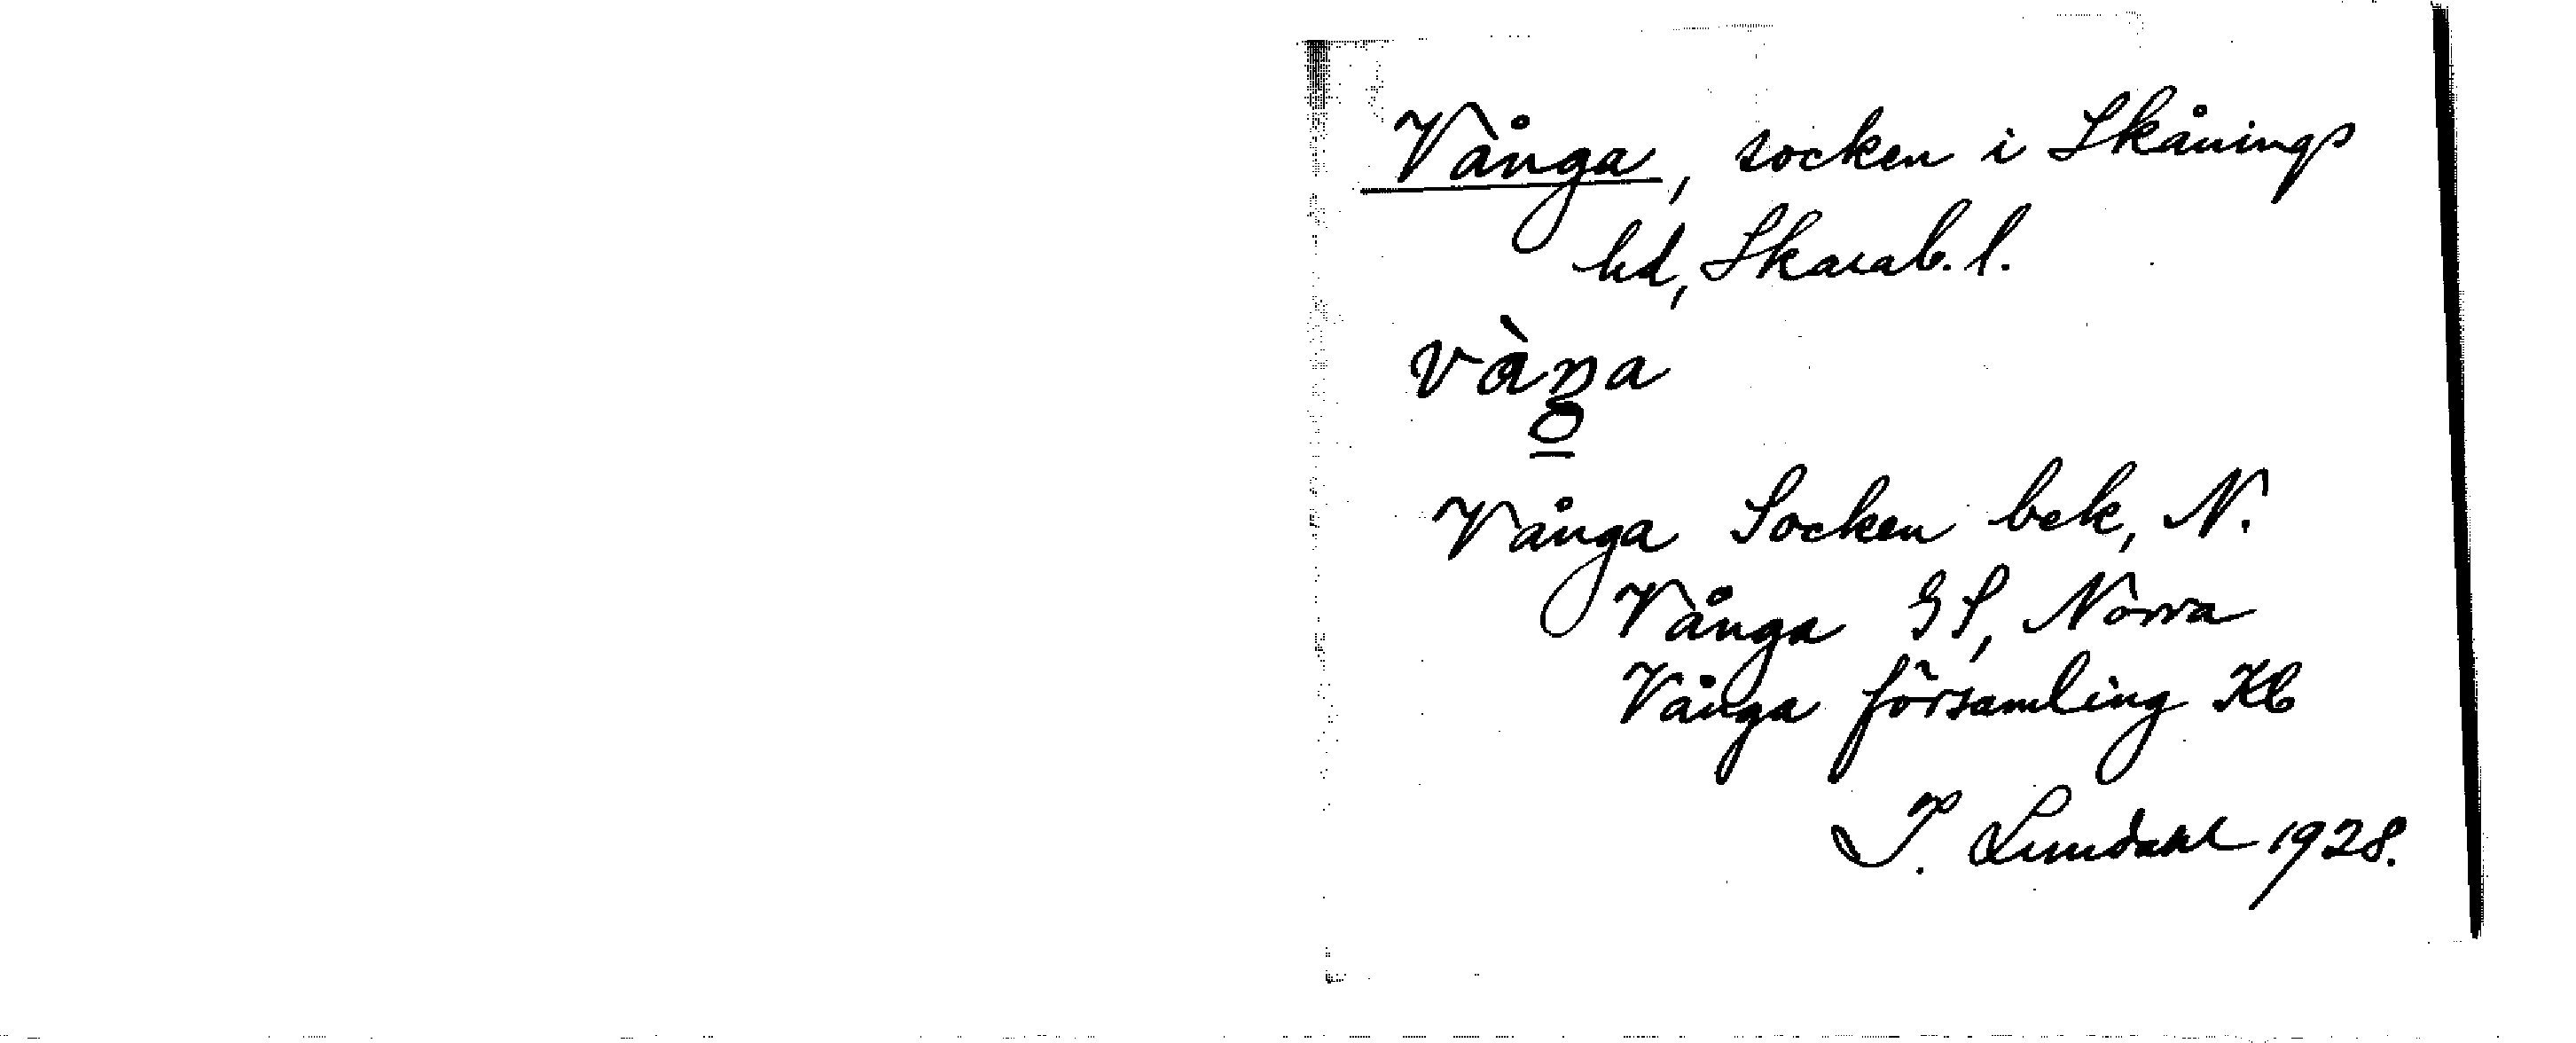 Vånga, socken i Skånings
hd, Skarab. l.
vàŋa
Vånga Socken bek, N.
Vånga GS, Norra
Vånga församling Kb
P. Lundahl 1928.